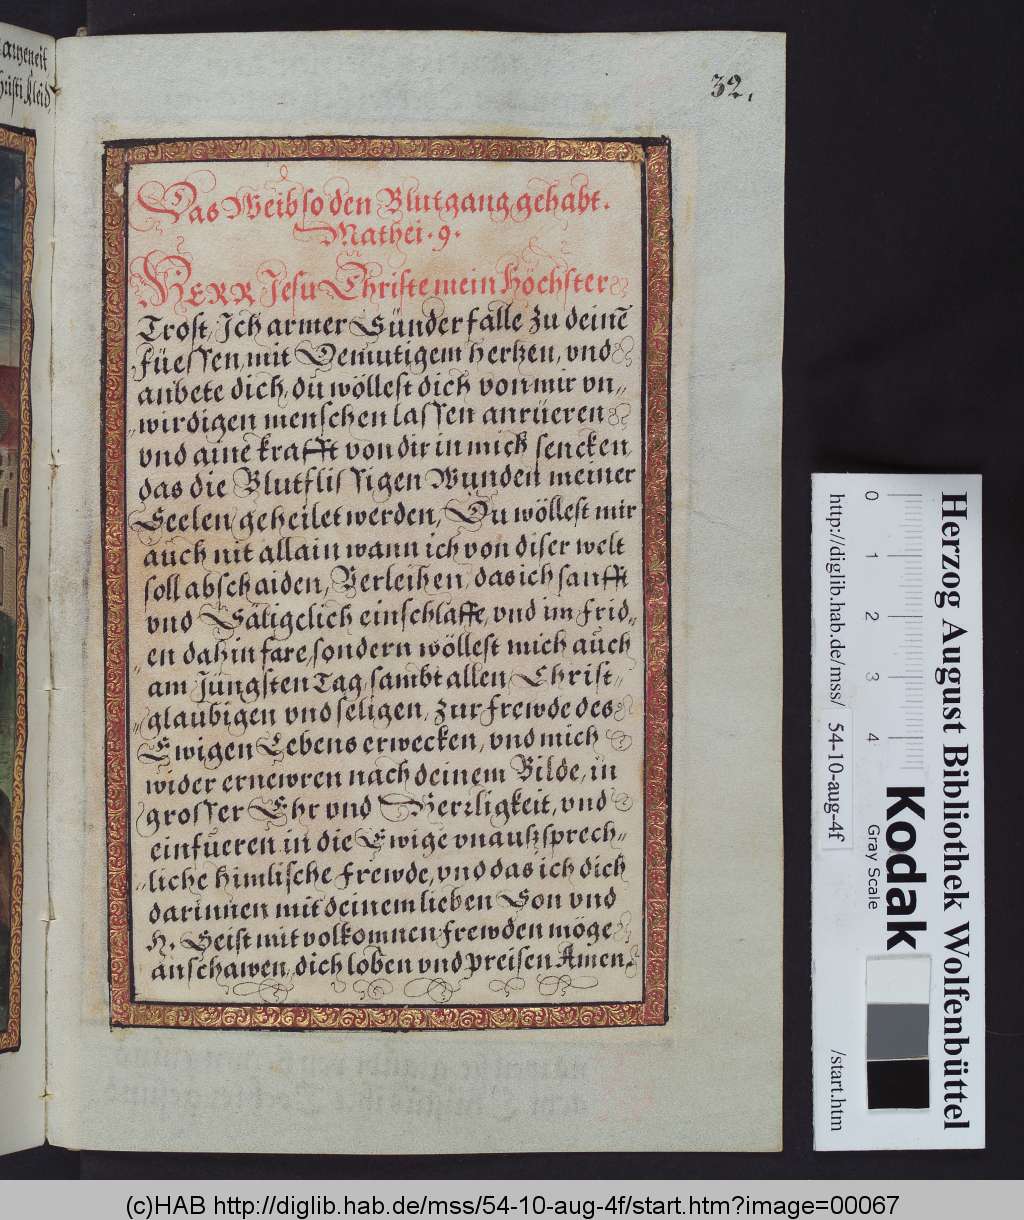 aweneit
hristi kleid,
32.
Das Weib so den Blutgang gehabt.
Mathei . 9 .
HERR Jesu Christe mein Höchster
Trost, Ich armer Sünder falle zu deinē
füessen, mit Demutigem hertzen, vnd
anbete dich, du wöllest dich von mir vn„
„wirdigen menschen lassen anrüeren
vnd ainē krafft von dir in mich sencken,
das die Blutflissigen Wunden meiner
Seelen geheilet werden, Du wöllest mir
auch nit allain wann ich von diser welt
soll abschaiden, Verleihen, das ich sanfft
vnd Säligclich einschlaffe, vnd im frid„
„en dahin fare, sondern wöllest mich auch
am Jüngsten Tag, sambt allen Christ„
„glaubigen vnd seligen, zur frewde des
Ewigen Lebens erwecken, vnd mich
wider ernewren nach deinem Bilde, in
grosser Ehr vnd Herrligkeit, vnd
einfueren in die Ewige vnaußsprech„
„liche himlische frewde, vnd das ich dich
darinnen mit deinem lieben Son vnd
H. Geist mit volkomnen frewden möge
anschawen, dich loben vnd preisen Amen.
Herzog August Bibliothek Wolfenbüttel
http://diglib.hab.de/mss/ 54-10-aug-4f /start.htm
0 1 2 3 4
Kodak
Gray Scale
(c)HAB http://diglib.hab.de/mss/54-10-aug-4f/start.htm?image=00067